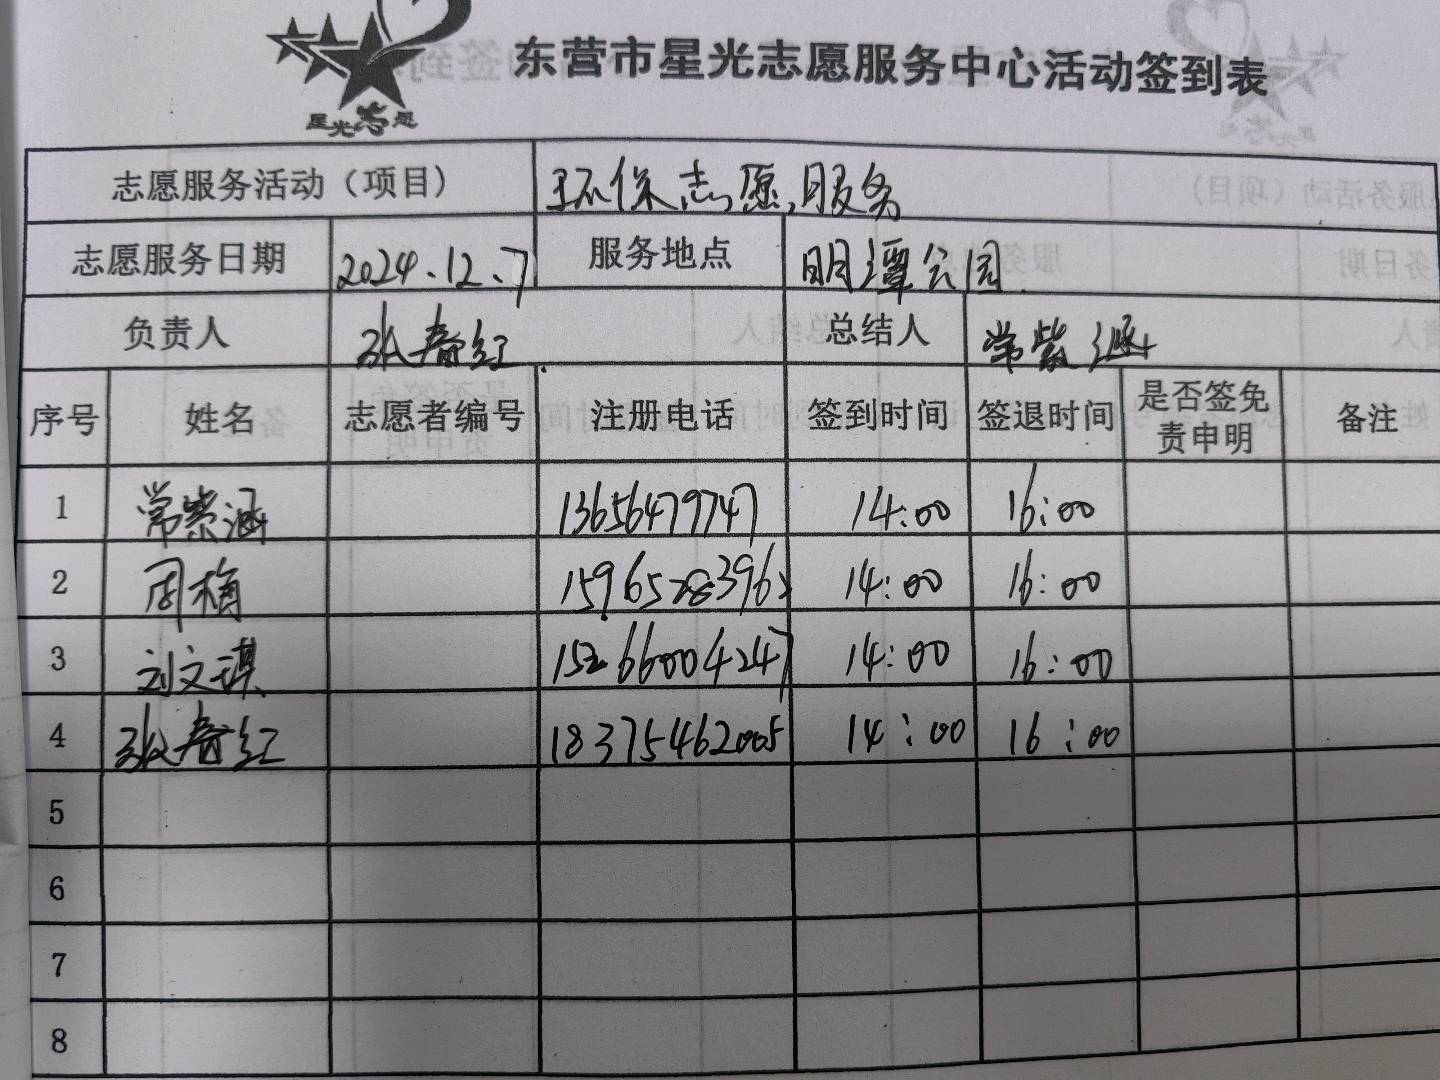 星光志愿
东营市星光志愿服务中心活动签到表
志愿服务活动（项目） 环保志愿服务
志愿服务日期 2024.12.7 服务地点 明潭公园
负责人 张春红 总结人 常紫涵
序号 姓名 志愿者编号 注册电话 签到时间 签退时间 是否签免责申明 备注
1 常紫涵 13656479747 14:00 16:00
2 周梅 15965283962 14:00 16:00
3 刘文琪 15266004247 14:00 16:00
4 张春红 18375462005 14:00 16:00
5
6
7
8